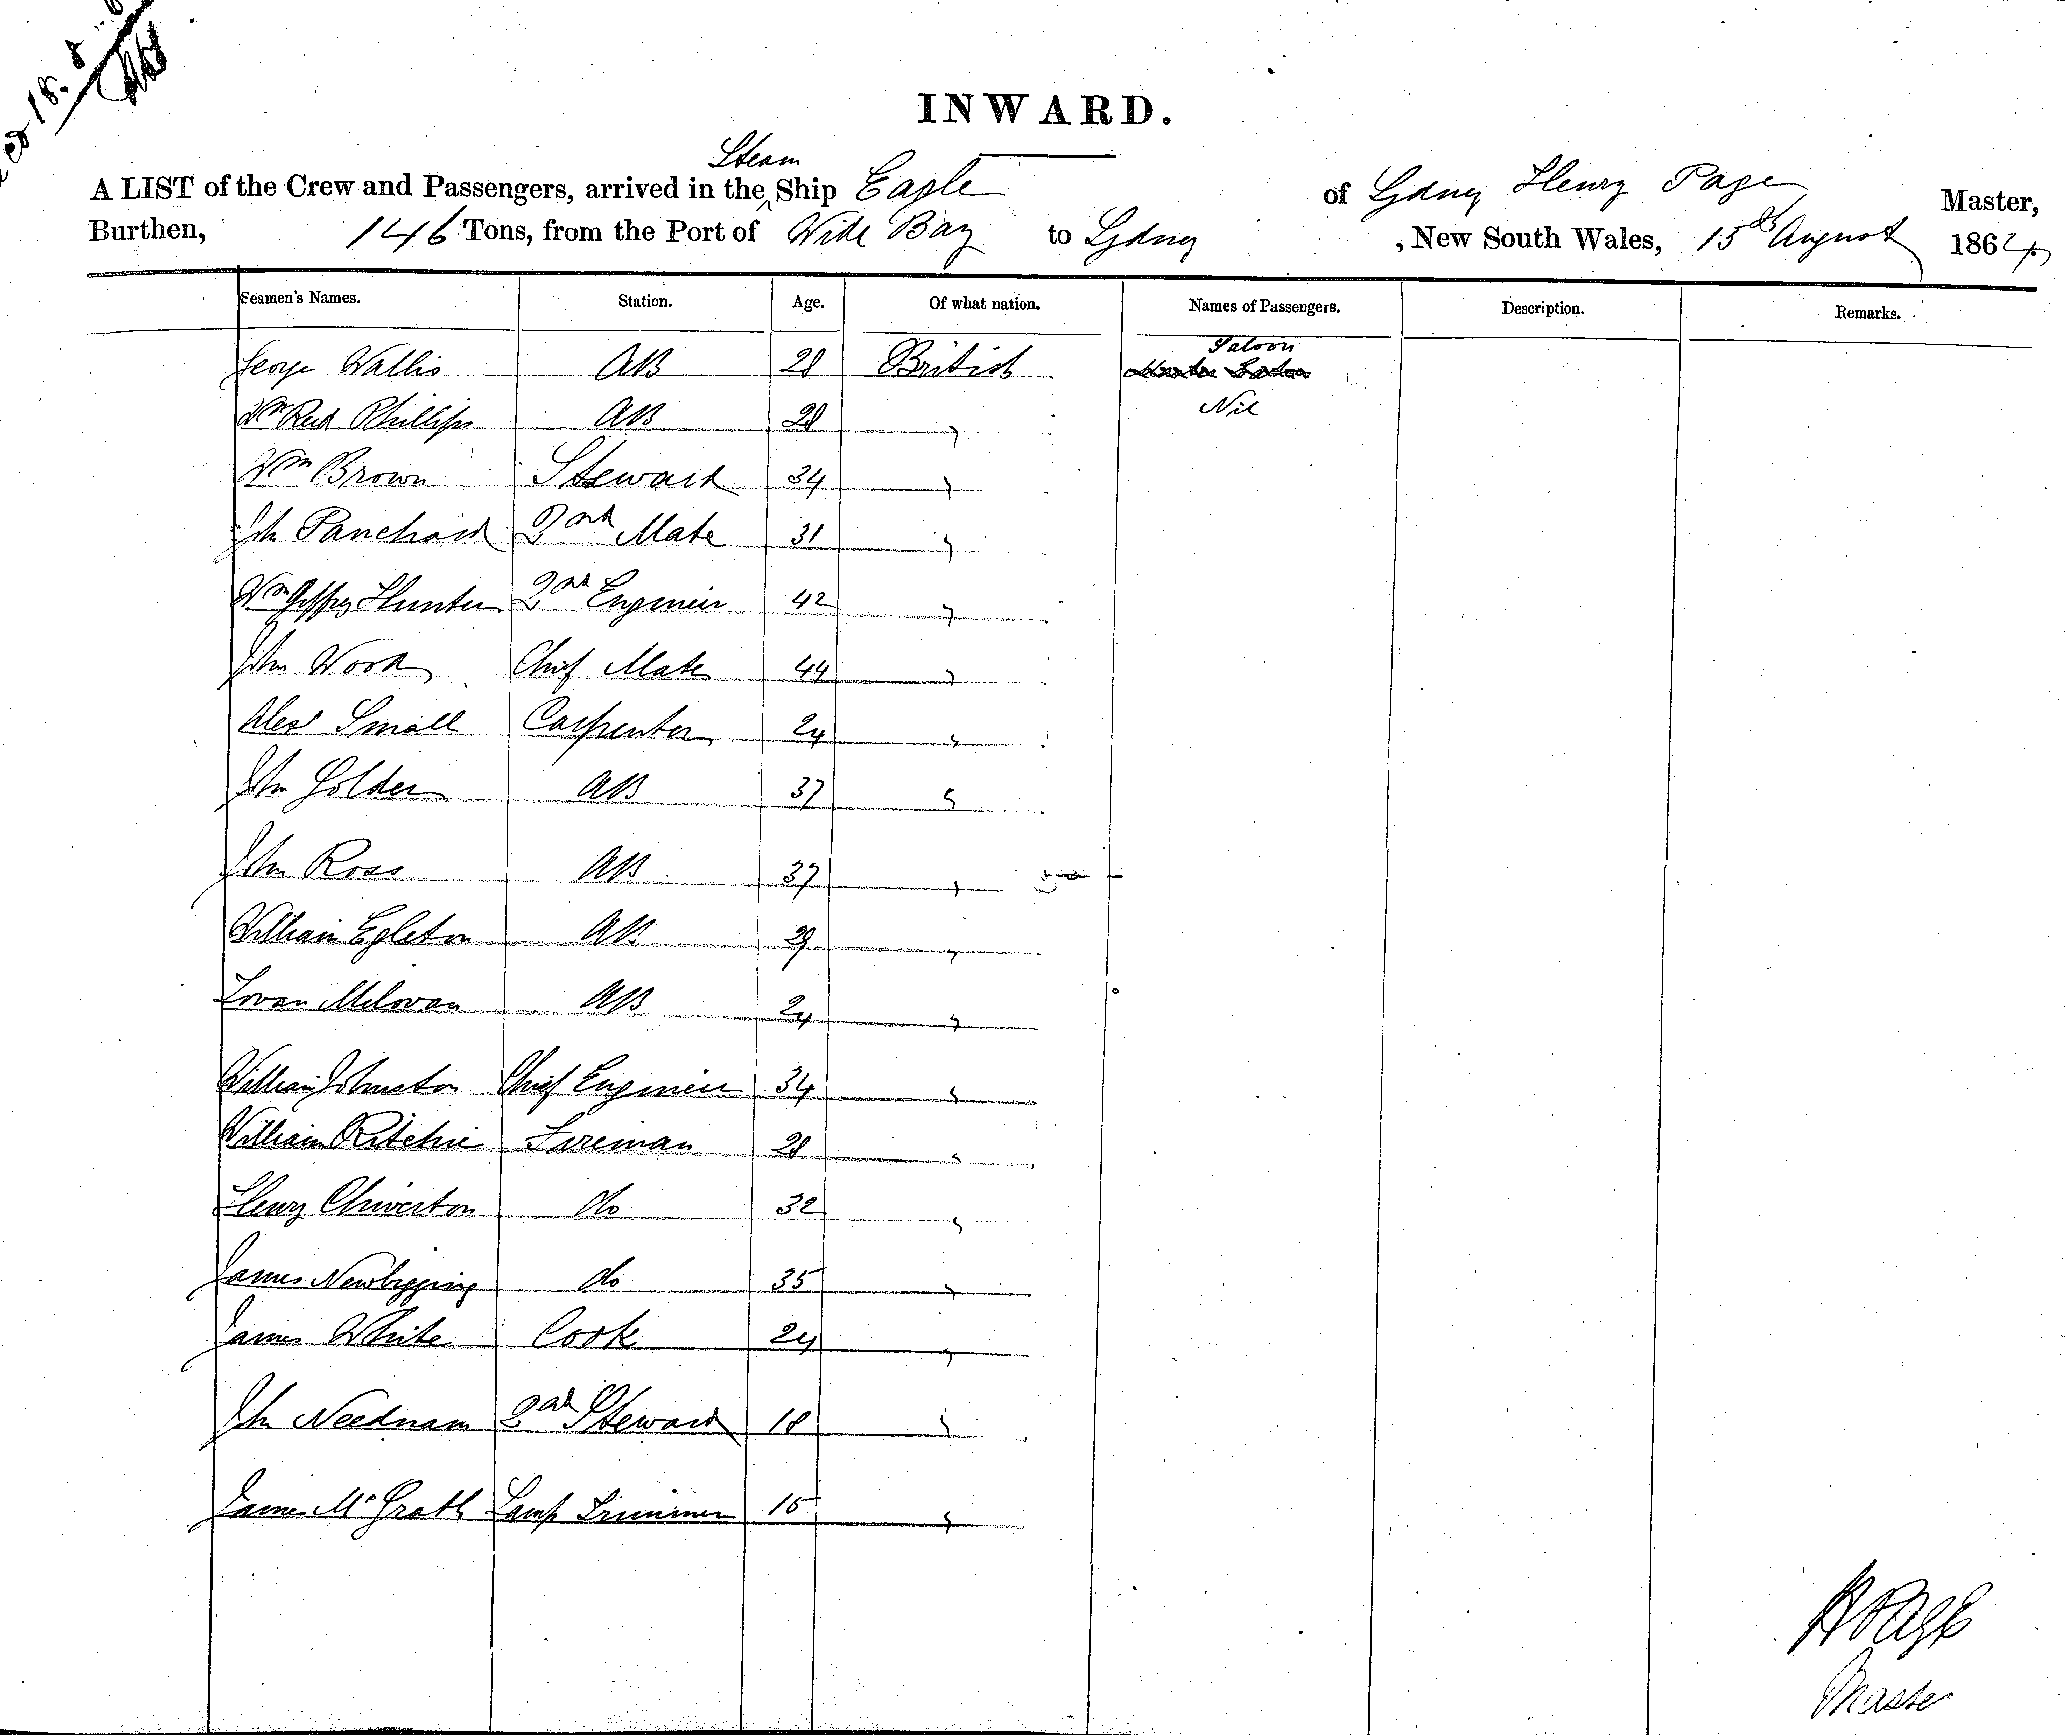 18. 8
INWARD.
Steam
A LIST of the Crew and Passengers, arrived in the ^ Ship Eagle of Sydney Henry Page Master,
Burthen, 146 Tons, from the Port of Wide Bay to Sydney , New South Wales, 15th August 1864
Seamen's Names. Station. Age. Of what nation. Names of Passengers. Description. Remarks.
Saloon
George Wallis AB 28 British
Wm Reid Phillips AB 28 " Nil
Wm Brown Steward 34 "
Jno Panchard 2nd Mate 31 "
Wm Jeffrey Hunter 2nd Engineer 42 "
John Wood Chief Mate 44 "
Alexr Small Carpenter 24 "
Jno Golden AB 37 "
John Ross AB 37 "
William Egleton AB 29 "
AB 24 "
William Johnston Chief Engineer 34 "
William Ritchie Fireman 28 "
Henry Chiverton do 32 "
James Newbigging do 35 "
James White Cook 24 "
Jno Neednam 2nd Steward 18 "
James McGrath Lamp Trimmer 15 "
H Page
Master